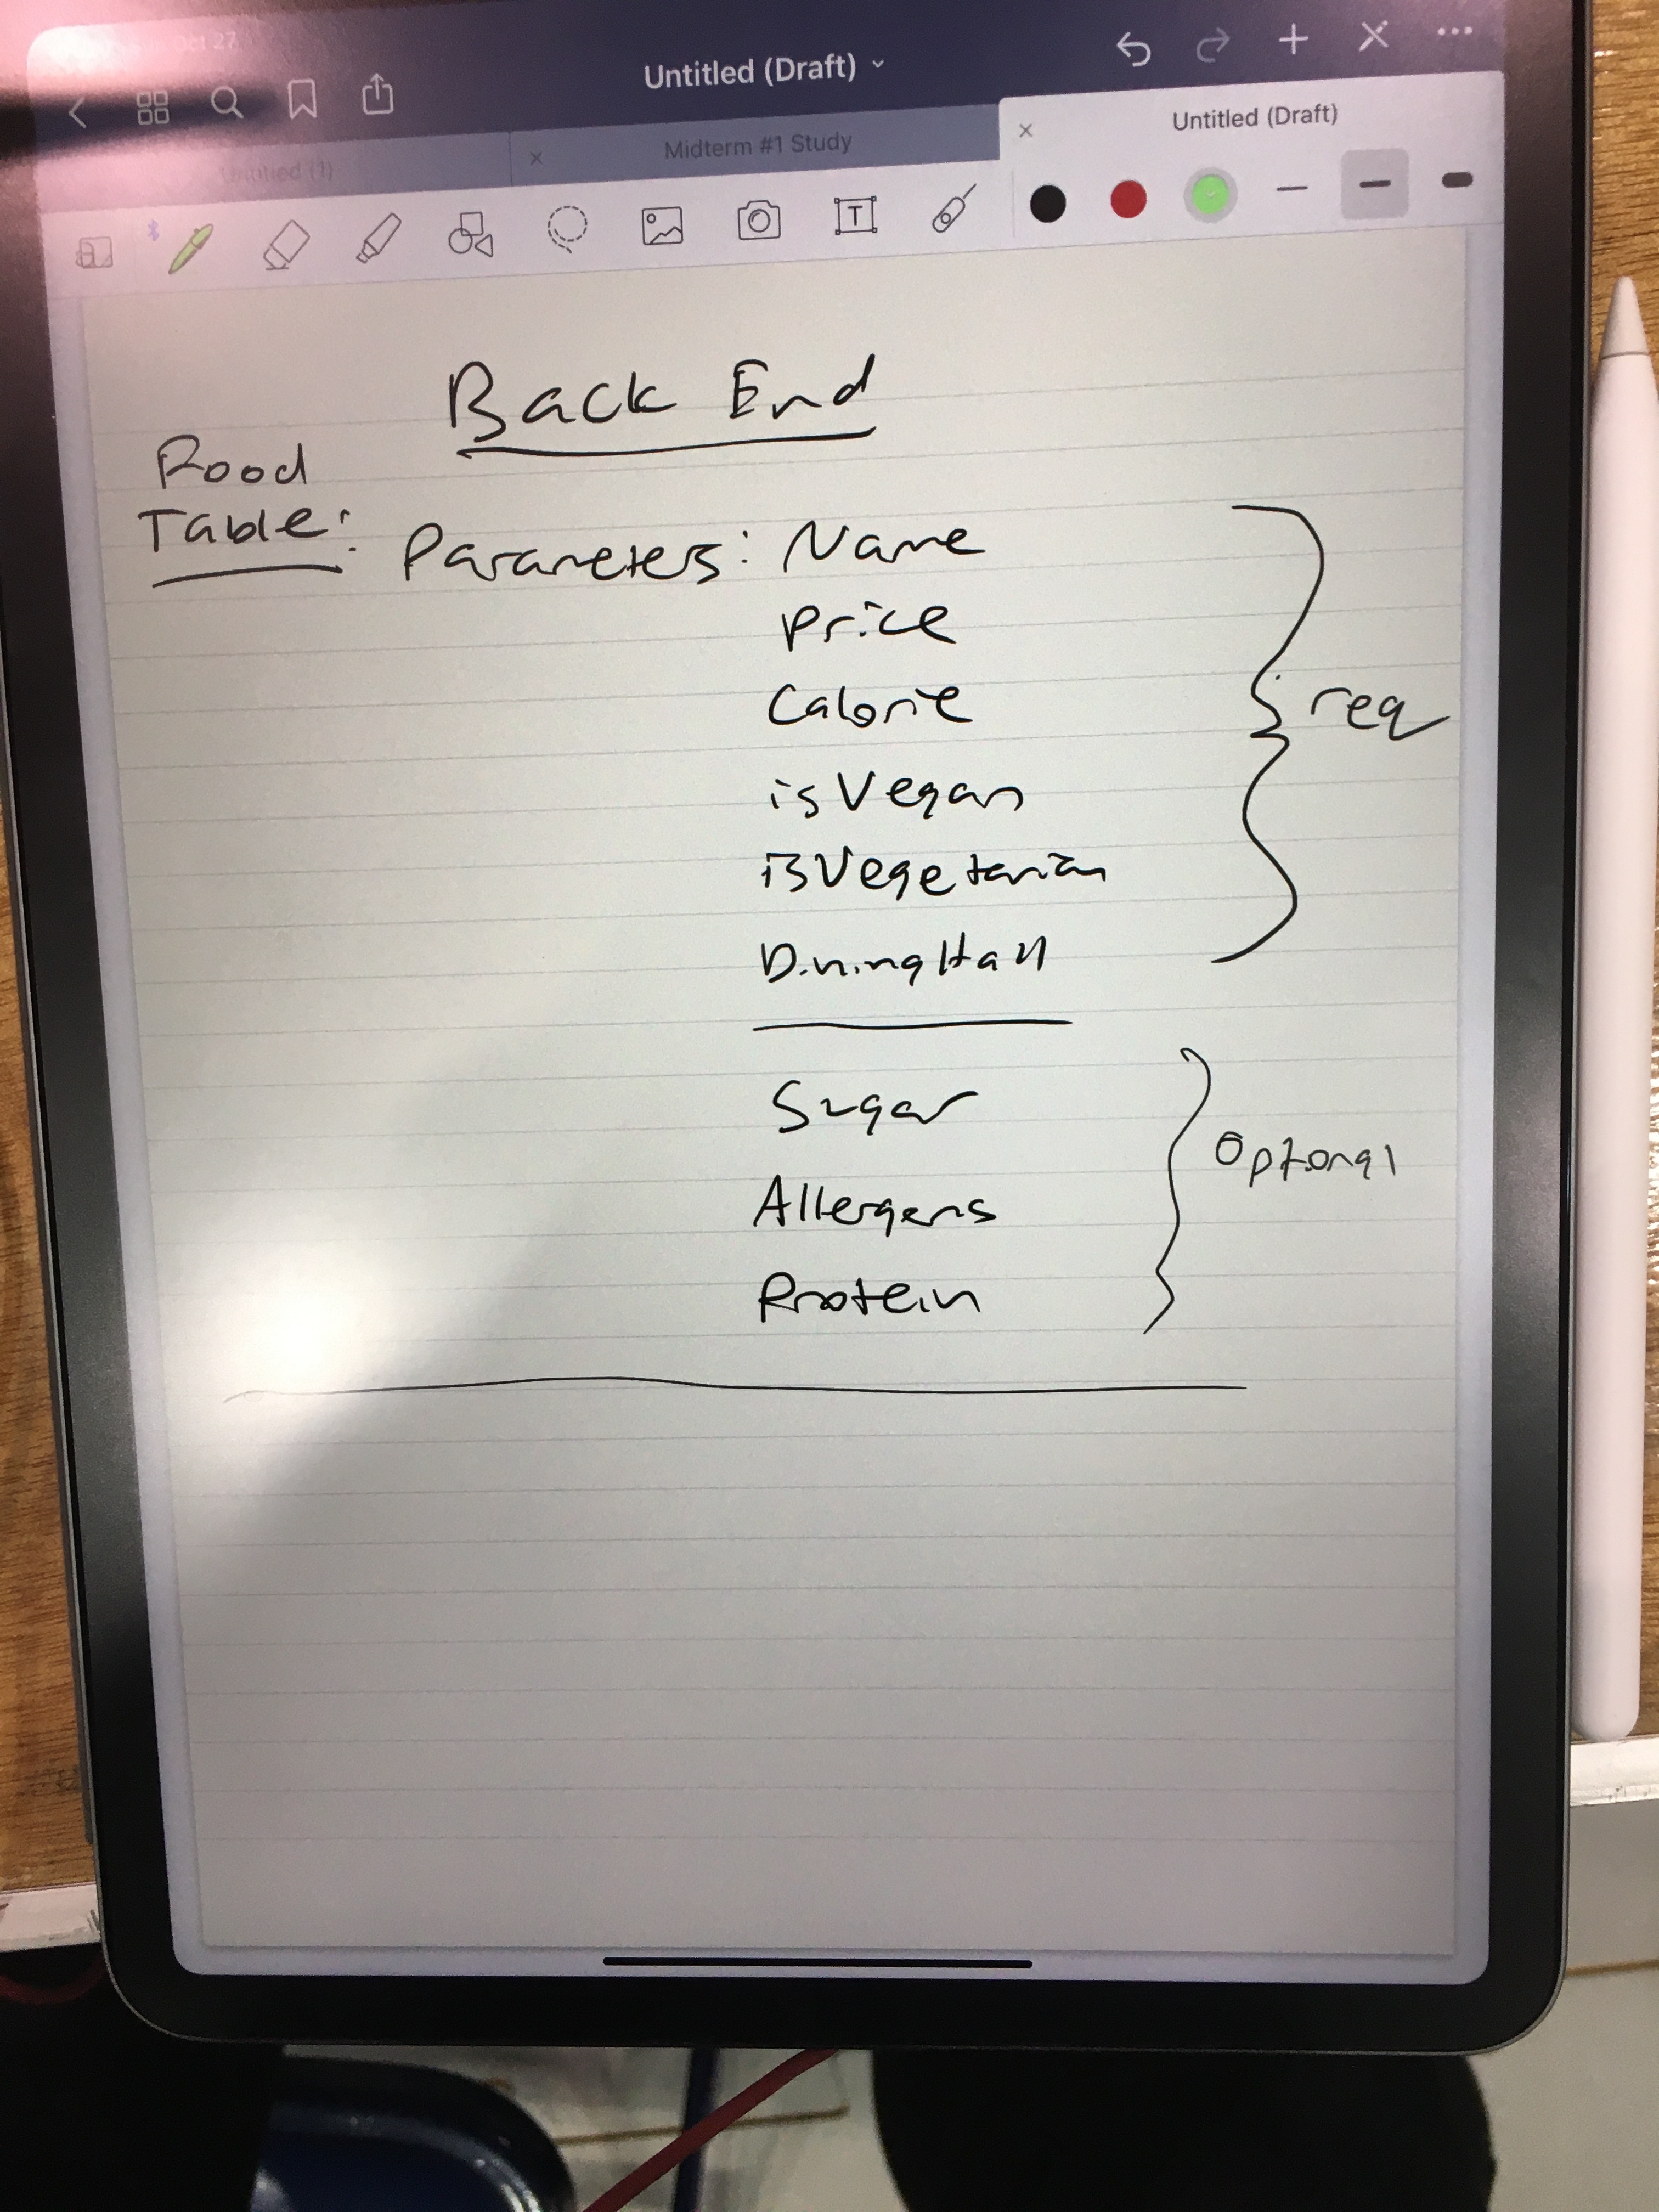 Oct 27
Untitled (Draft)
Untitled (1)
Midterm #1 Study
Untitled (Draft)
T
Back End
Food
Table:
Parameters: Name
Price
Calorie
req
isVegan
isVegetarian
DiningHall
Sugar
Optional
Allergens
Protein